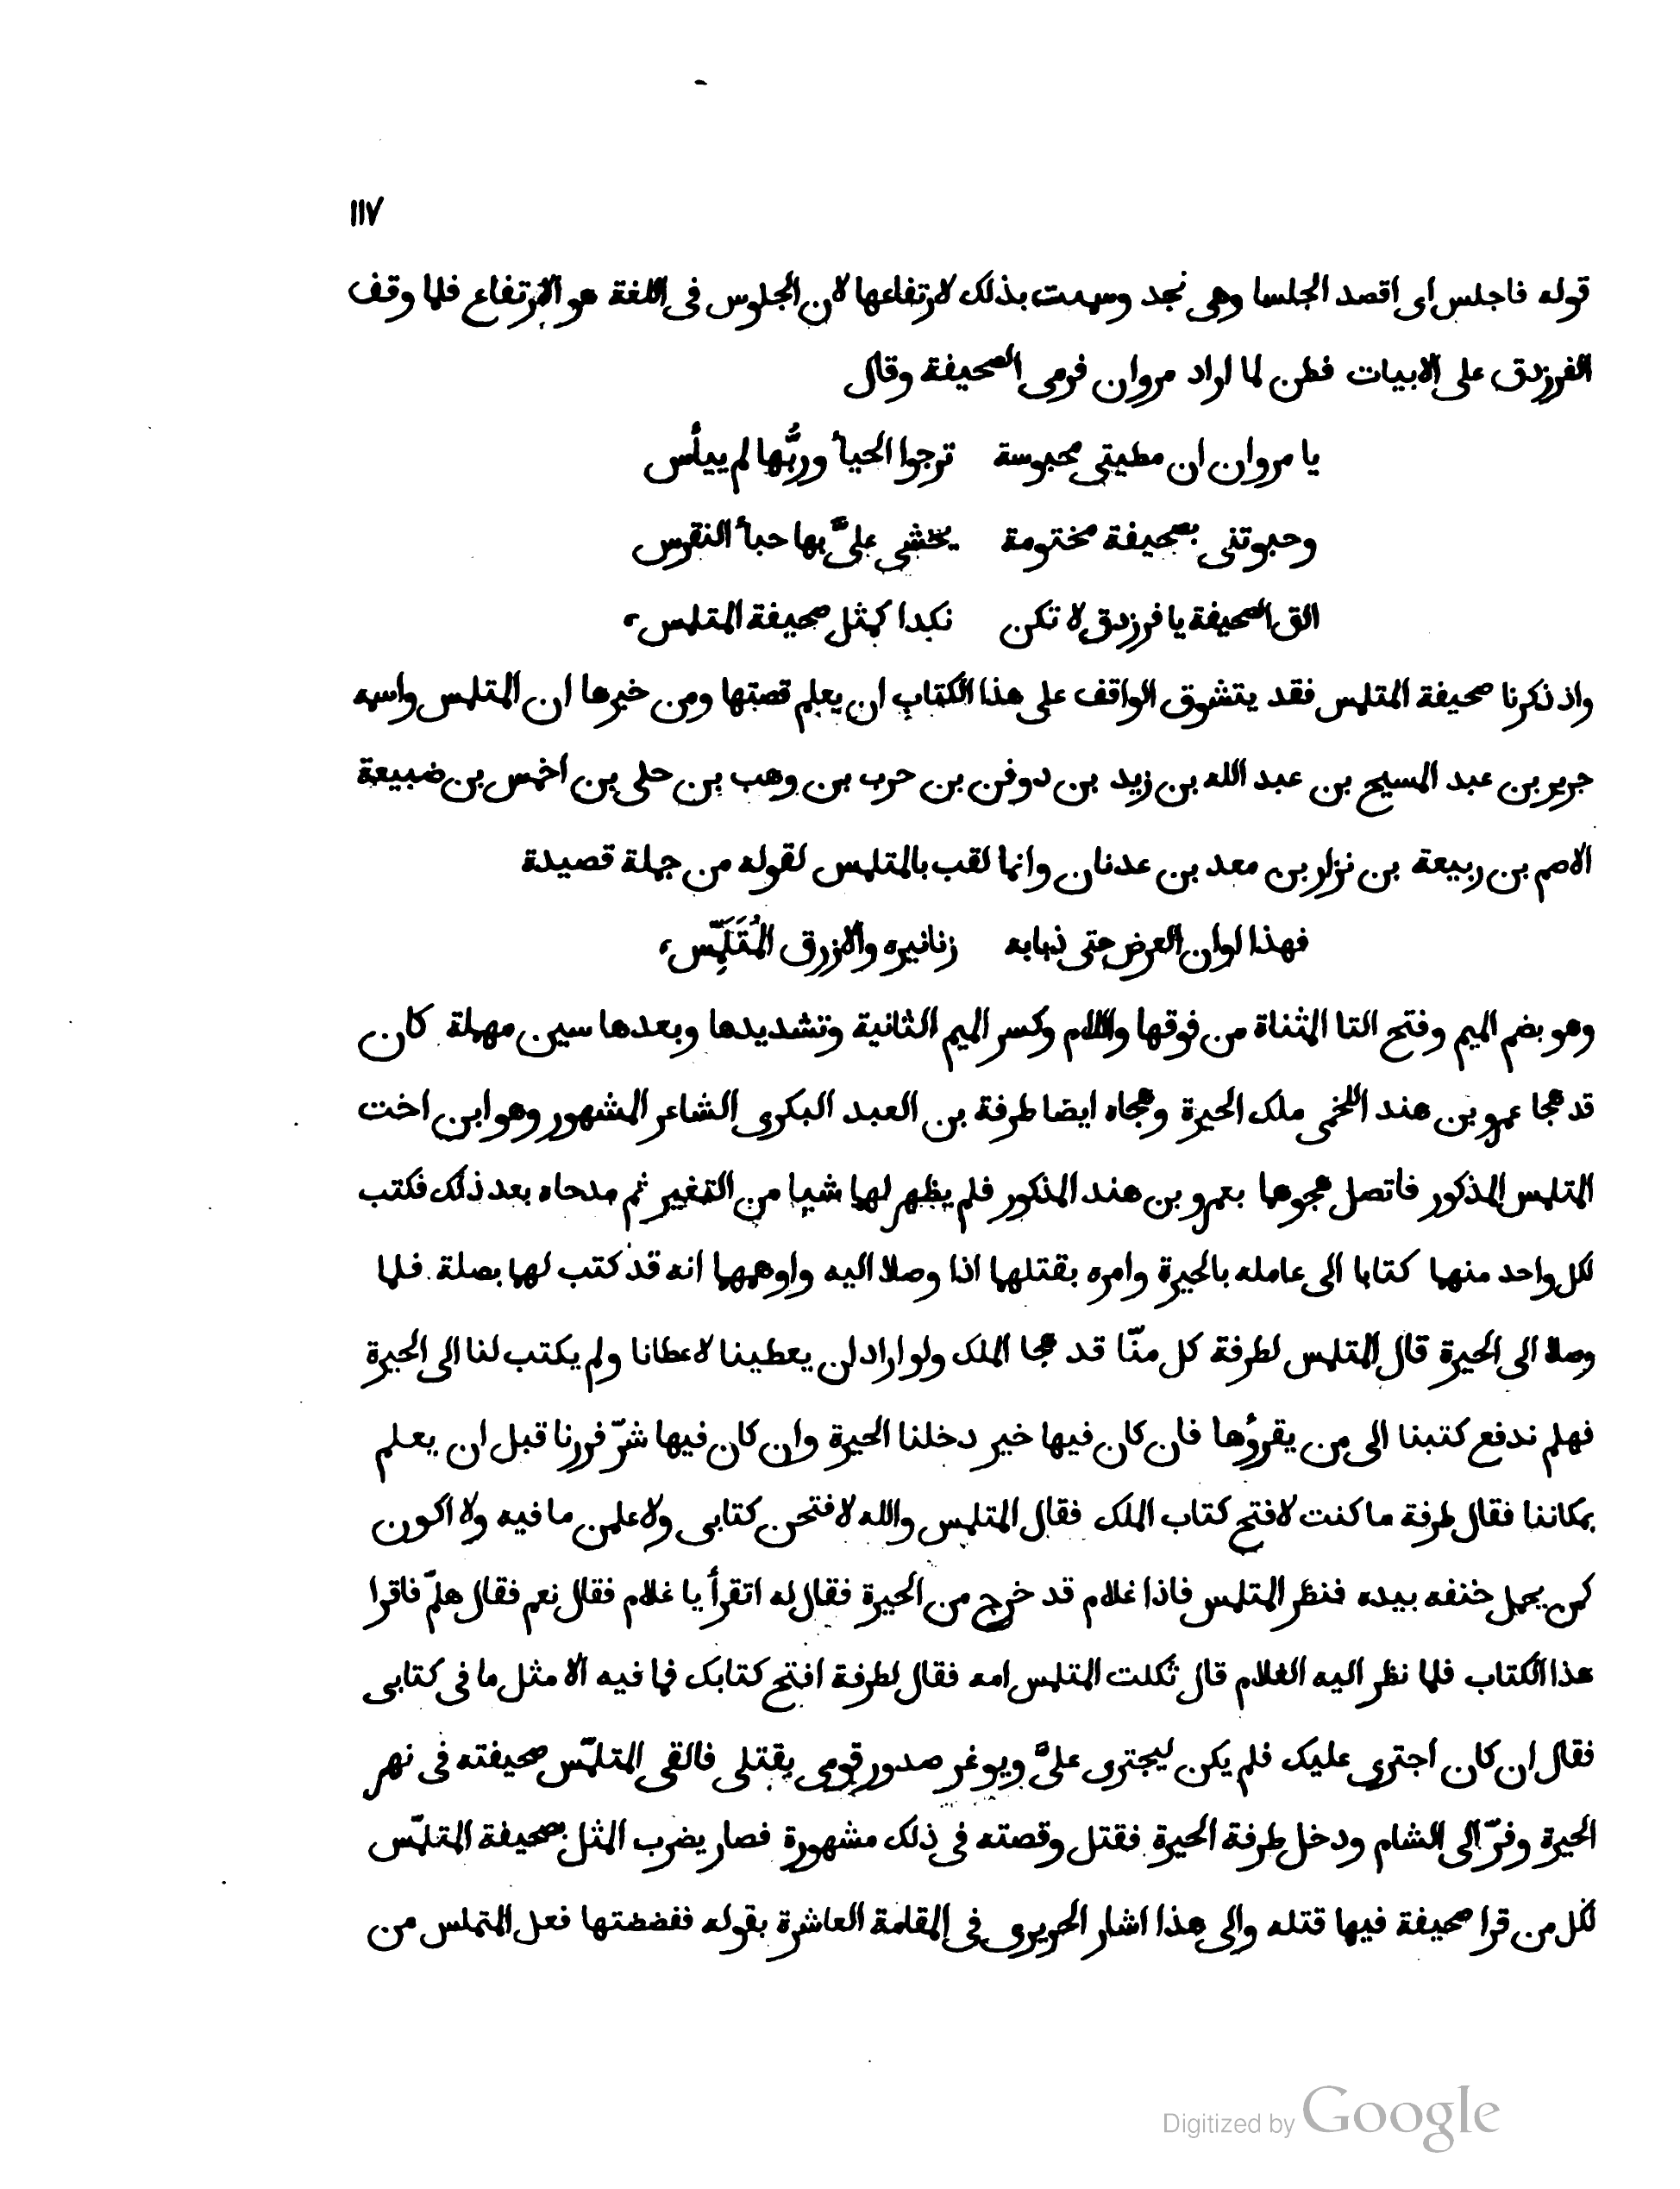 ١١٧
قوله فاجلس اى اقصد الجلسا وهى نجد وسميت بذلك لارتفاعها لان الجلوس فى اللغة هو الارتفاع فلما وقف
الفرزدق على الابيات فطن لما اراد مروان فرمى الصحيفة وقال
يا مروان ان مطيتى محبوسة ترجوا الحبأ وربُّها لم ييأس
وحبوتنى بصحيفة مختومة يخشى علىَّ بها حبأ النقرس
الق الصحيفة يا فرزدق لا تكن نكدا كمثل صحيفة المتلمس،
واذ ذكرنا صحيفة المتلمس فقد يتشوق الواقف على هذا الكتاب ان يعلم قصتها ومن خبرها ان المتلمس واسمه
جرير بن عبد المسيح بن عبد الله بن زيد بن دوفن بن حرب بن وهب بن حلى بن اخمس بن ضبيعة
الاصم بن ربيعة بن نزار بن معد بن عدنان وانما لقب بالمتلمس لقوله من جملة قصيدة
فهذا اوان العرض حتى ذبابه زنانيره والازرق المُتَلَمِّس،
وهو بضم الميم وفتح التا المثناة من فوقها واللام وكسر الميم الثانية وتشديدها وبعدها سين مهملة كان
قد هجا عمرو بن هند اللخمى ملك الحيرة وهجاه ايضا طرفة بن العبد البكرى الشاعر المشهور وهو ابن اخت
المتلمس المذكور فاتصل هجوهما بعمرو بن هند المذكور فلم يظهر لهما شيا من التغير ثم مدحاه بعد ذلك فكتب
لكل واحد منهما كتابا الى عامله بالحيرة وامره بقتلهما اذا وصلا اليه واوهمهما انه قد كتب لهما بصلة فلما
وصلا الى الحيرة قال المتلمس لطرفة كل منّا قد هجا الملك ولو اراد ان يعطينا لاعطانا ولم يكتب لنا الى الحيرة
فهلم ندفع كتبنا الى من يقرؤها فان كان فيها خير دخلنا الحيرة وان كان فيها شرّ فررنا قبل ان يعلم
بمكاننا فقال طرفة ما كنت لافتح كتاب الملك فقال المتلمس والله لافتحن كتابى ولاعلمن ما فيه ولا اكون
كمن يحمل خنفه بيده فنظر المتلمس فاذا غلام قد خرج من الحيرة فقال له اتقرأ يا غلام فقال نعم فقال هلمّ فاقرا
هذا الكتاب فلما نظر اليه الغلام قال ثكلت المتلمس امه فقال لطرفة افتح كتابك فما فيه الا مثل ما فى كتابى
فقال ان كان اجترى عليك فلم يكن ليجترى علىَّ ويوغر صدور قومى بقتلى فالقى المتلمّس صحيفته فى نهر
الحيرة وفرّ الى الشام ودخل طرفة الحيرة فقتل وقصته فى ذلك مشهورة فصار يضرب المثل بصحيفة المتلمّس
لكل من قرا صحيفة فيها قتله والى هذا اشار الحريرى فى المقامة العاشرة بقوله ففضضتها فعل المتملس من
Digitized by Google